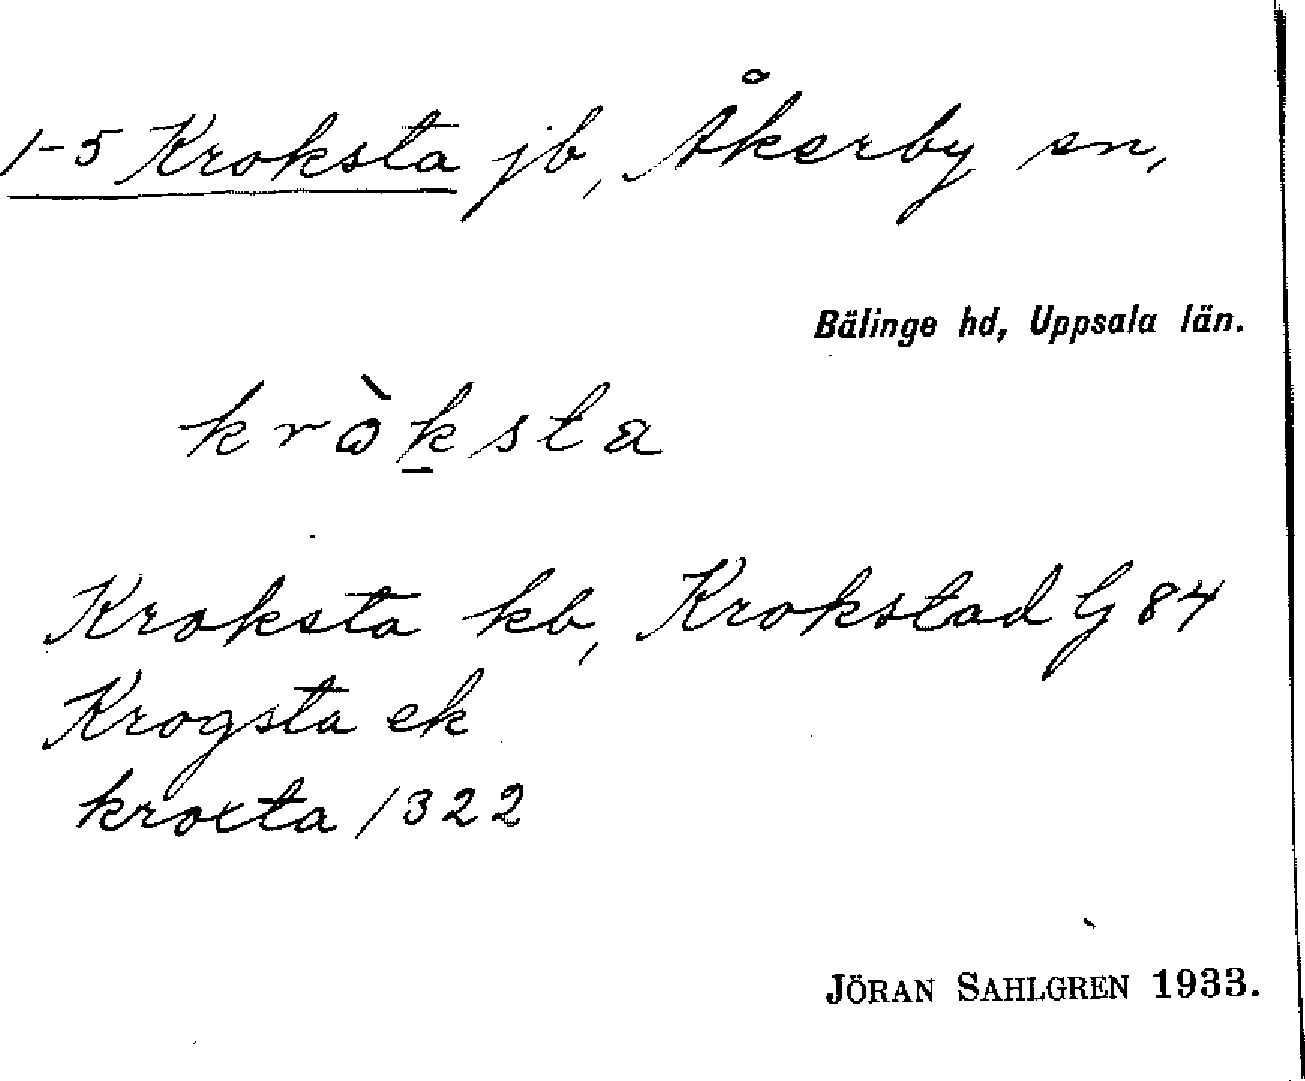 1-5 Kroksta jb, Åkerby sn,
Bälinge hd, Uppsala län.
krὼk̲sta
Kroksta kb, Krokstad G 84
Krogsta ek
kroxta 1322
JÖRAN SAHLGREN 1933.